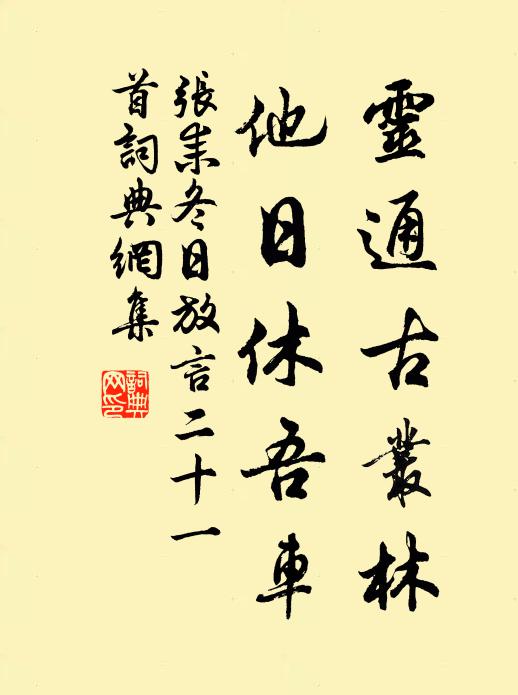 靈通古叢林
他日休吾車
張耒冬日放言二十一
首詞典網集
詞典網印